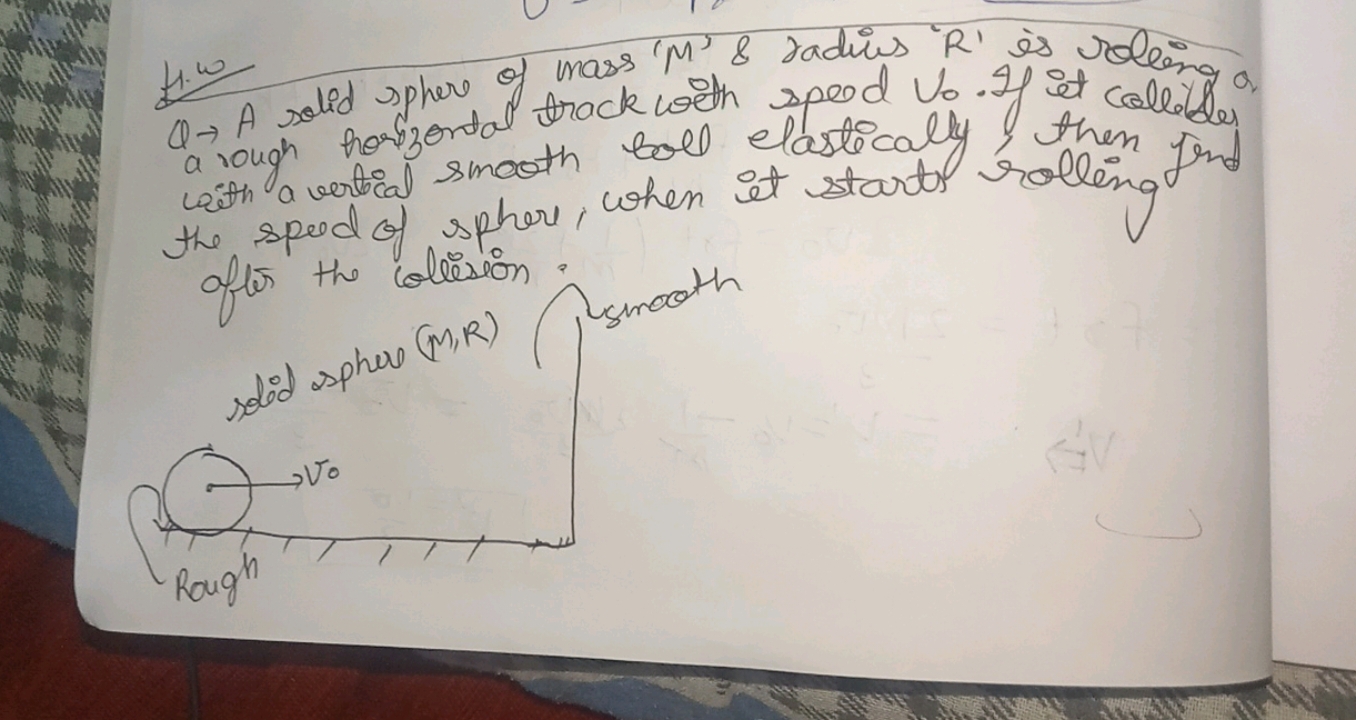 H.W
Q→ A solid sphere of mass 'M' & radius 'R' is rolling on
a rough horizontal track with speed V₀. If it collides
with a vertical smooth wall elastically, then find
the speed of sphere, when it starts rolling
after the collision.
smooth
solid sphere (M,R)
V₀
Rough